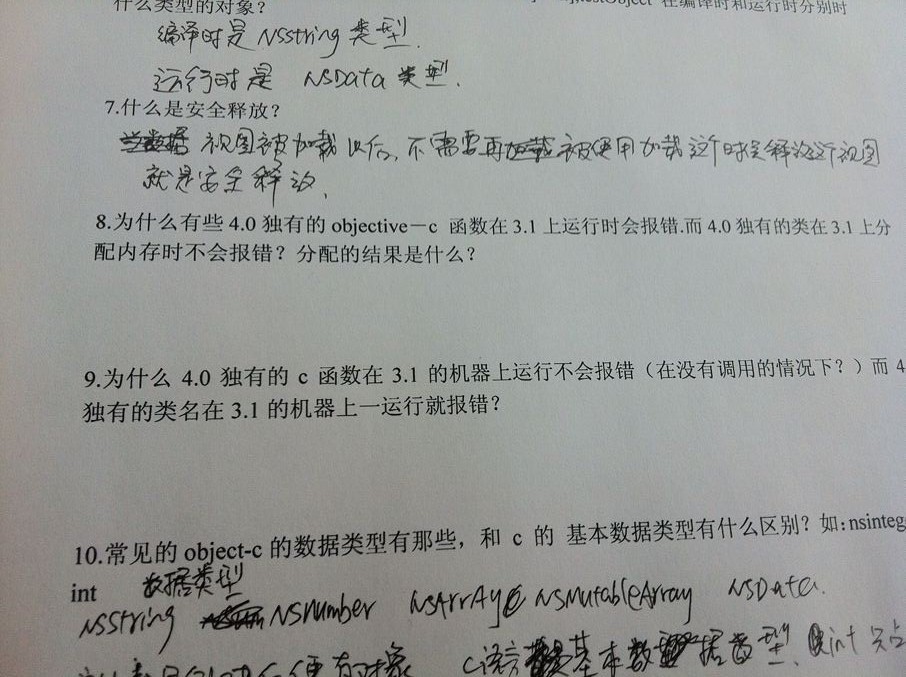 什么类型的对象？ testObject 在编译时和运行时分别时
编译时是 NSString 类型.
运行时是 NSData 类型.
7.什么是安全释放？
视图被加载以后,不需要再被使用加载这个时候释放这个视图
就是安全释放.
8.为什么有些 4.0 独有的 objective－c 函数在 3.1 上运行时会报错.而 4.0 独有的类在 3.1 上分
配内存时不会报错？分配的结果是什么？
9.为什么 4.0 独有的 c 函数在 3.1 的机器上运行不会报错（在没有调用的情况下？）而 4
独有的类名在 3.1 的机器上一运行就报错？
10.常见的 object-c 的数据类型有那些，和 c 的 基本数据类型有什么区别？如:nsinteg
int 数据类型
NSString NSNumber NSArrAy NSMutableArray NSData.
对象 C语言基本数据类型. int 只占